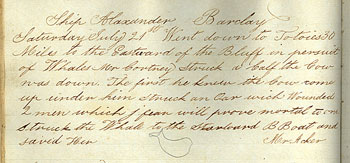 Ship Alexander Barclay
Saturday July 21st Went down to Tolois 30
Mile to the Eastward of the Bluff in persuit
of Whales Mr Cortney Struck a Calf the Cow
was down. The first he knew the Cow com
up under him Struck an Oar wich Wounded
2 men which I fear will prove mortal to on
Struck the Whale to the Starward B Boat and
saved Her Mr Acker